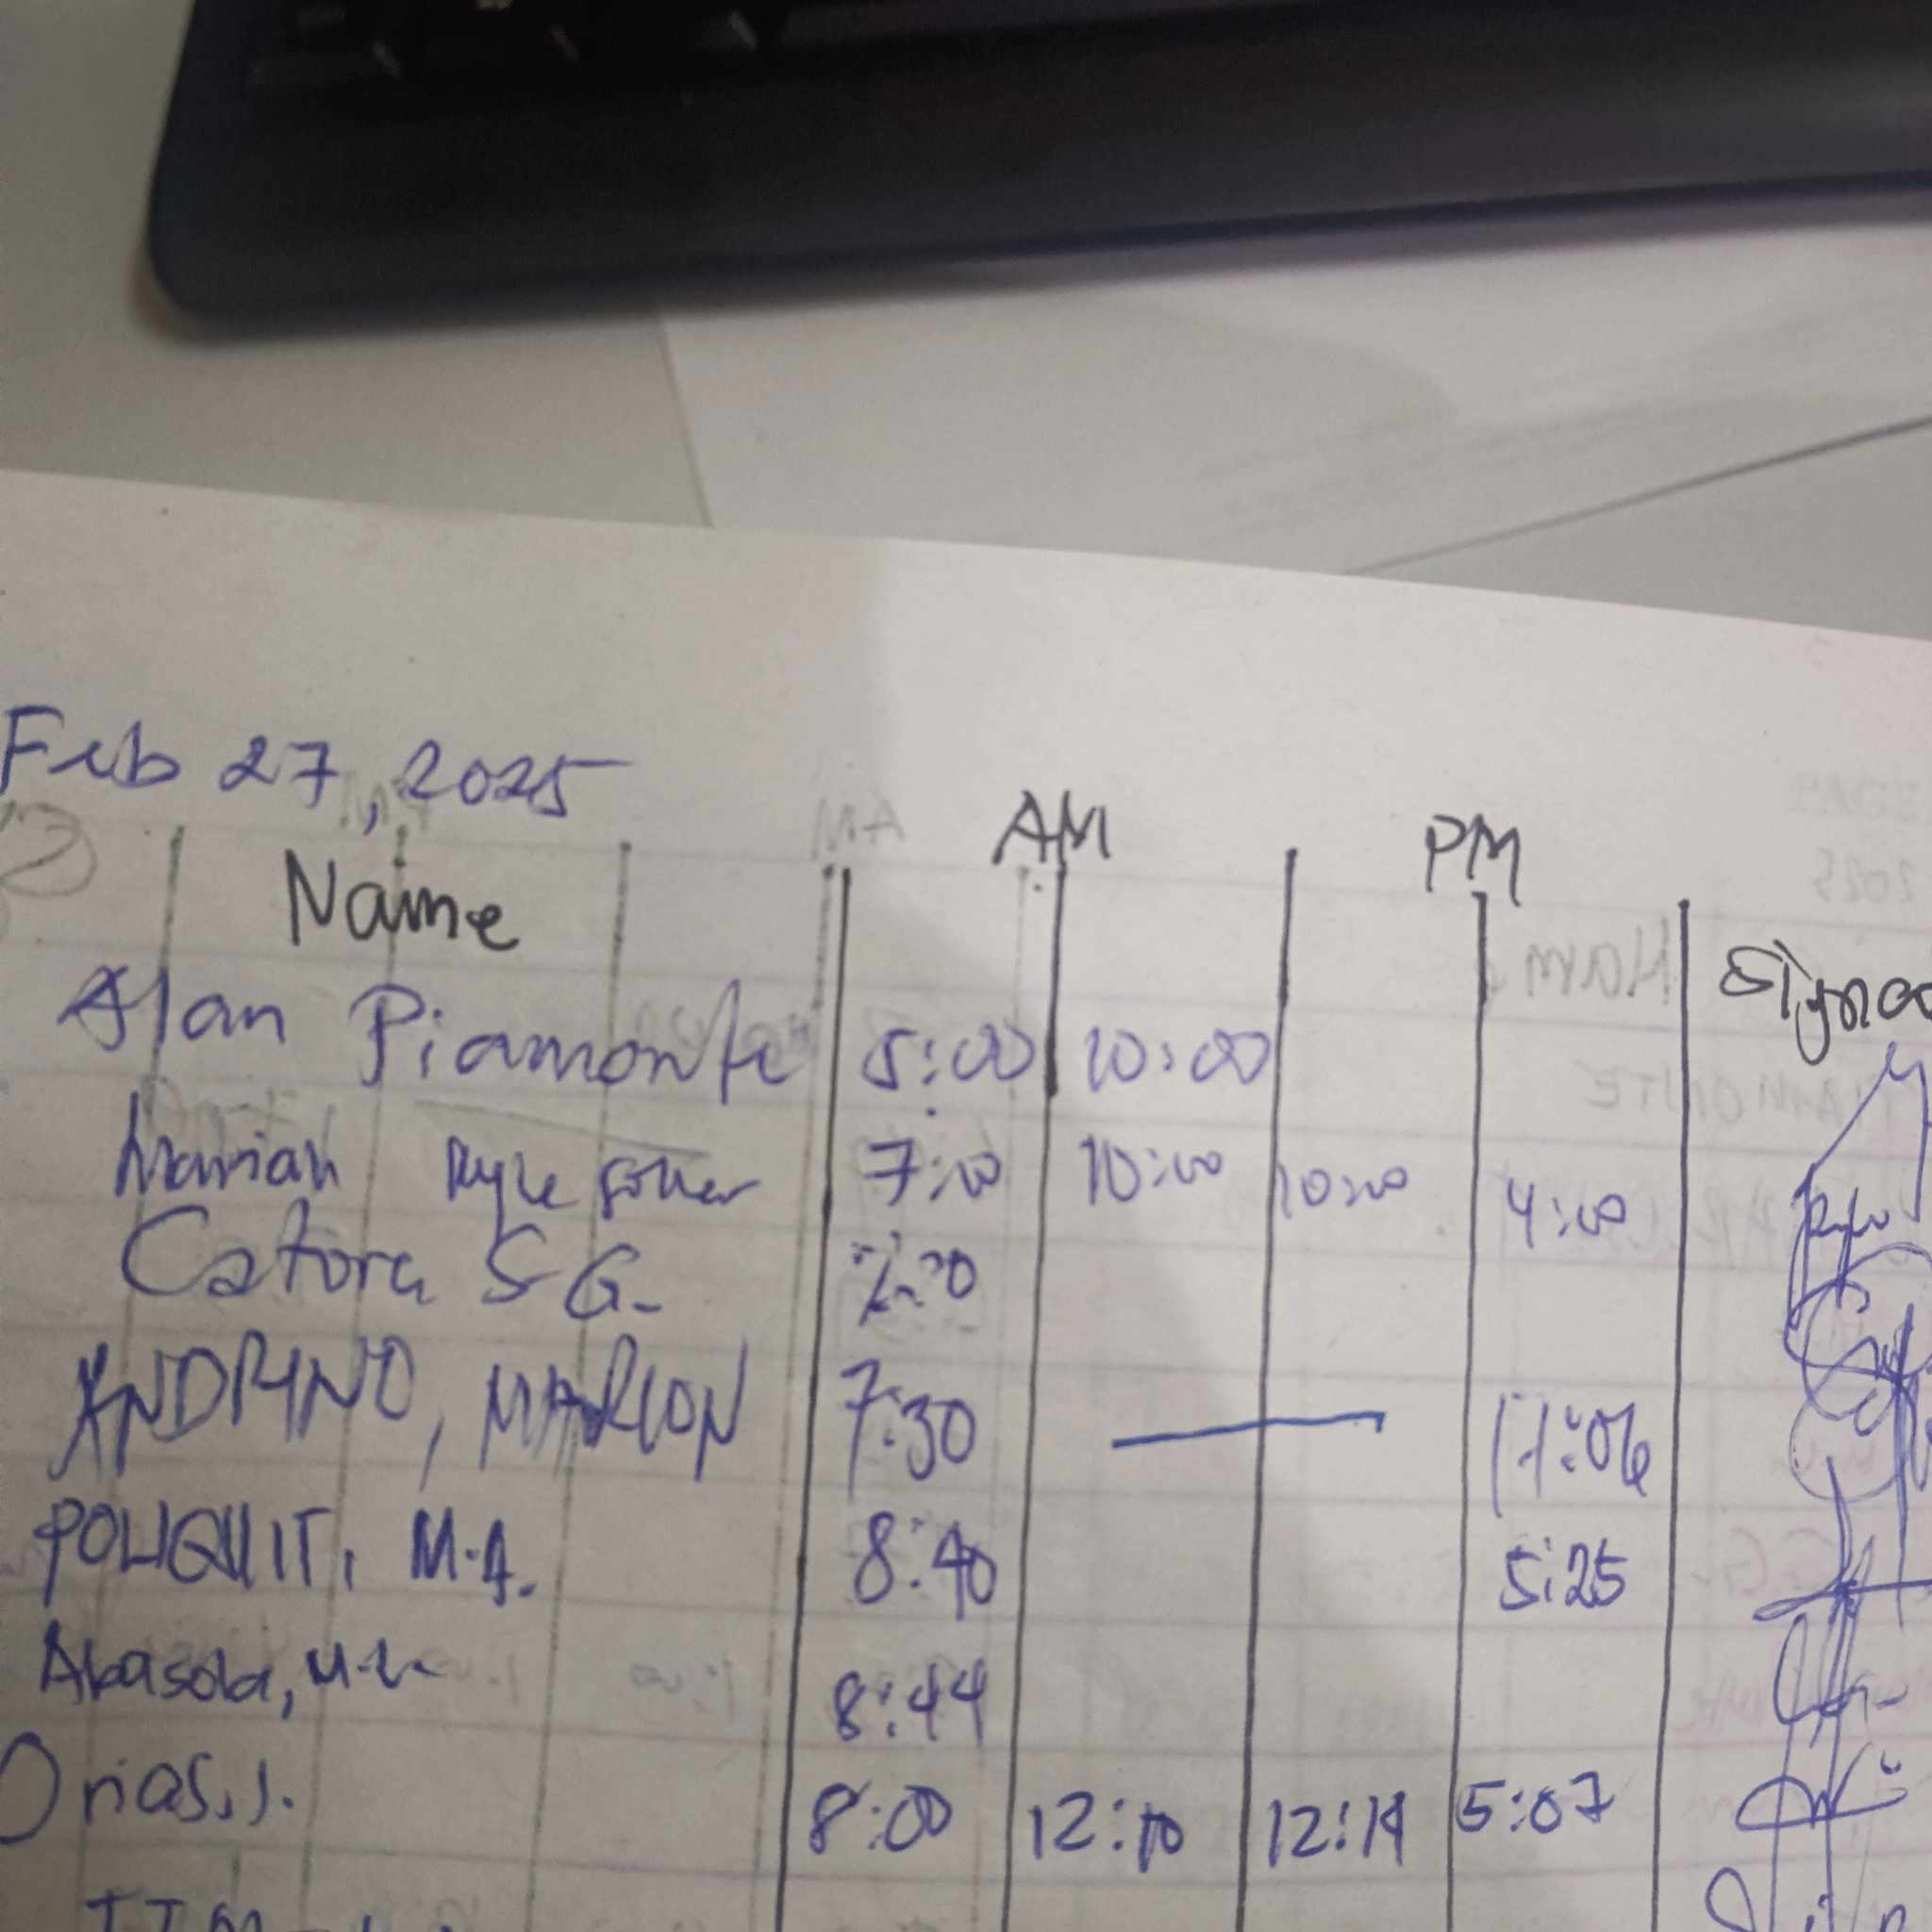 Feb 27, 2025
AM PM
Name
Alan Piamonte 5:00 10:00
Mariah Ryle 7:00 10:00 10:00 4:00
Catora S G.
ANDRINO, MARLON 7:30 11:06
POLIQUIT, M.A. 8:40 5:25
Abasola, 8:44
Orias, J. 8:00 12:10 12:14 5:07